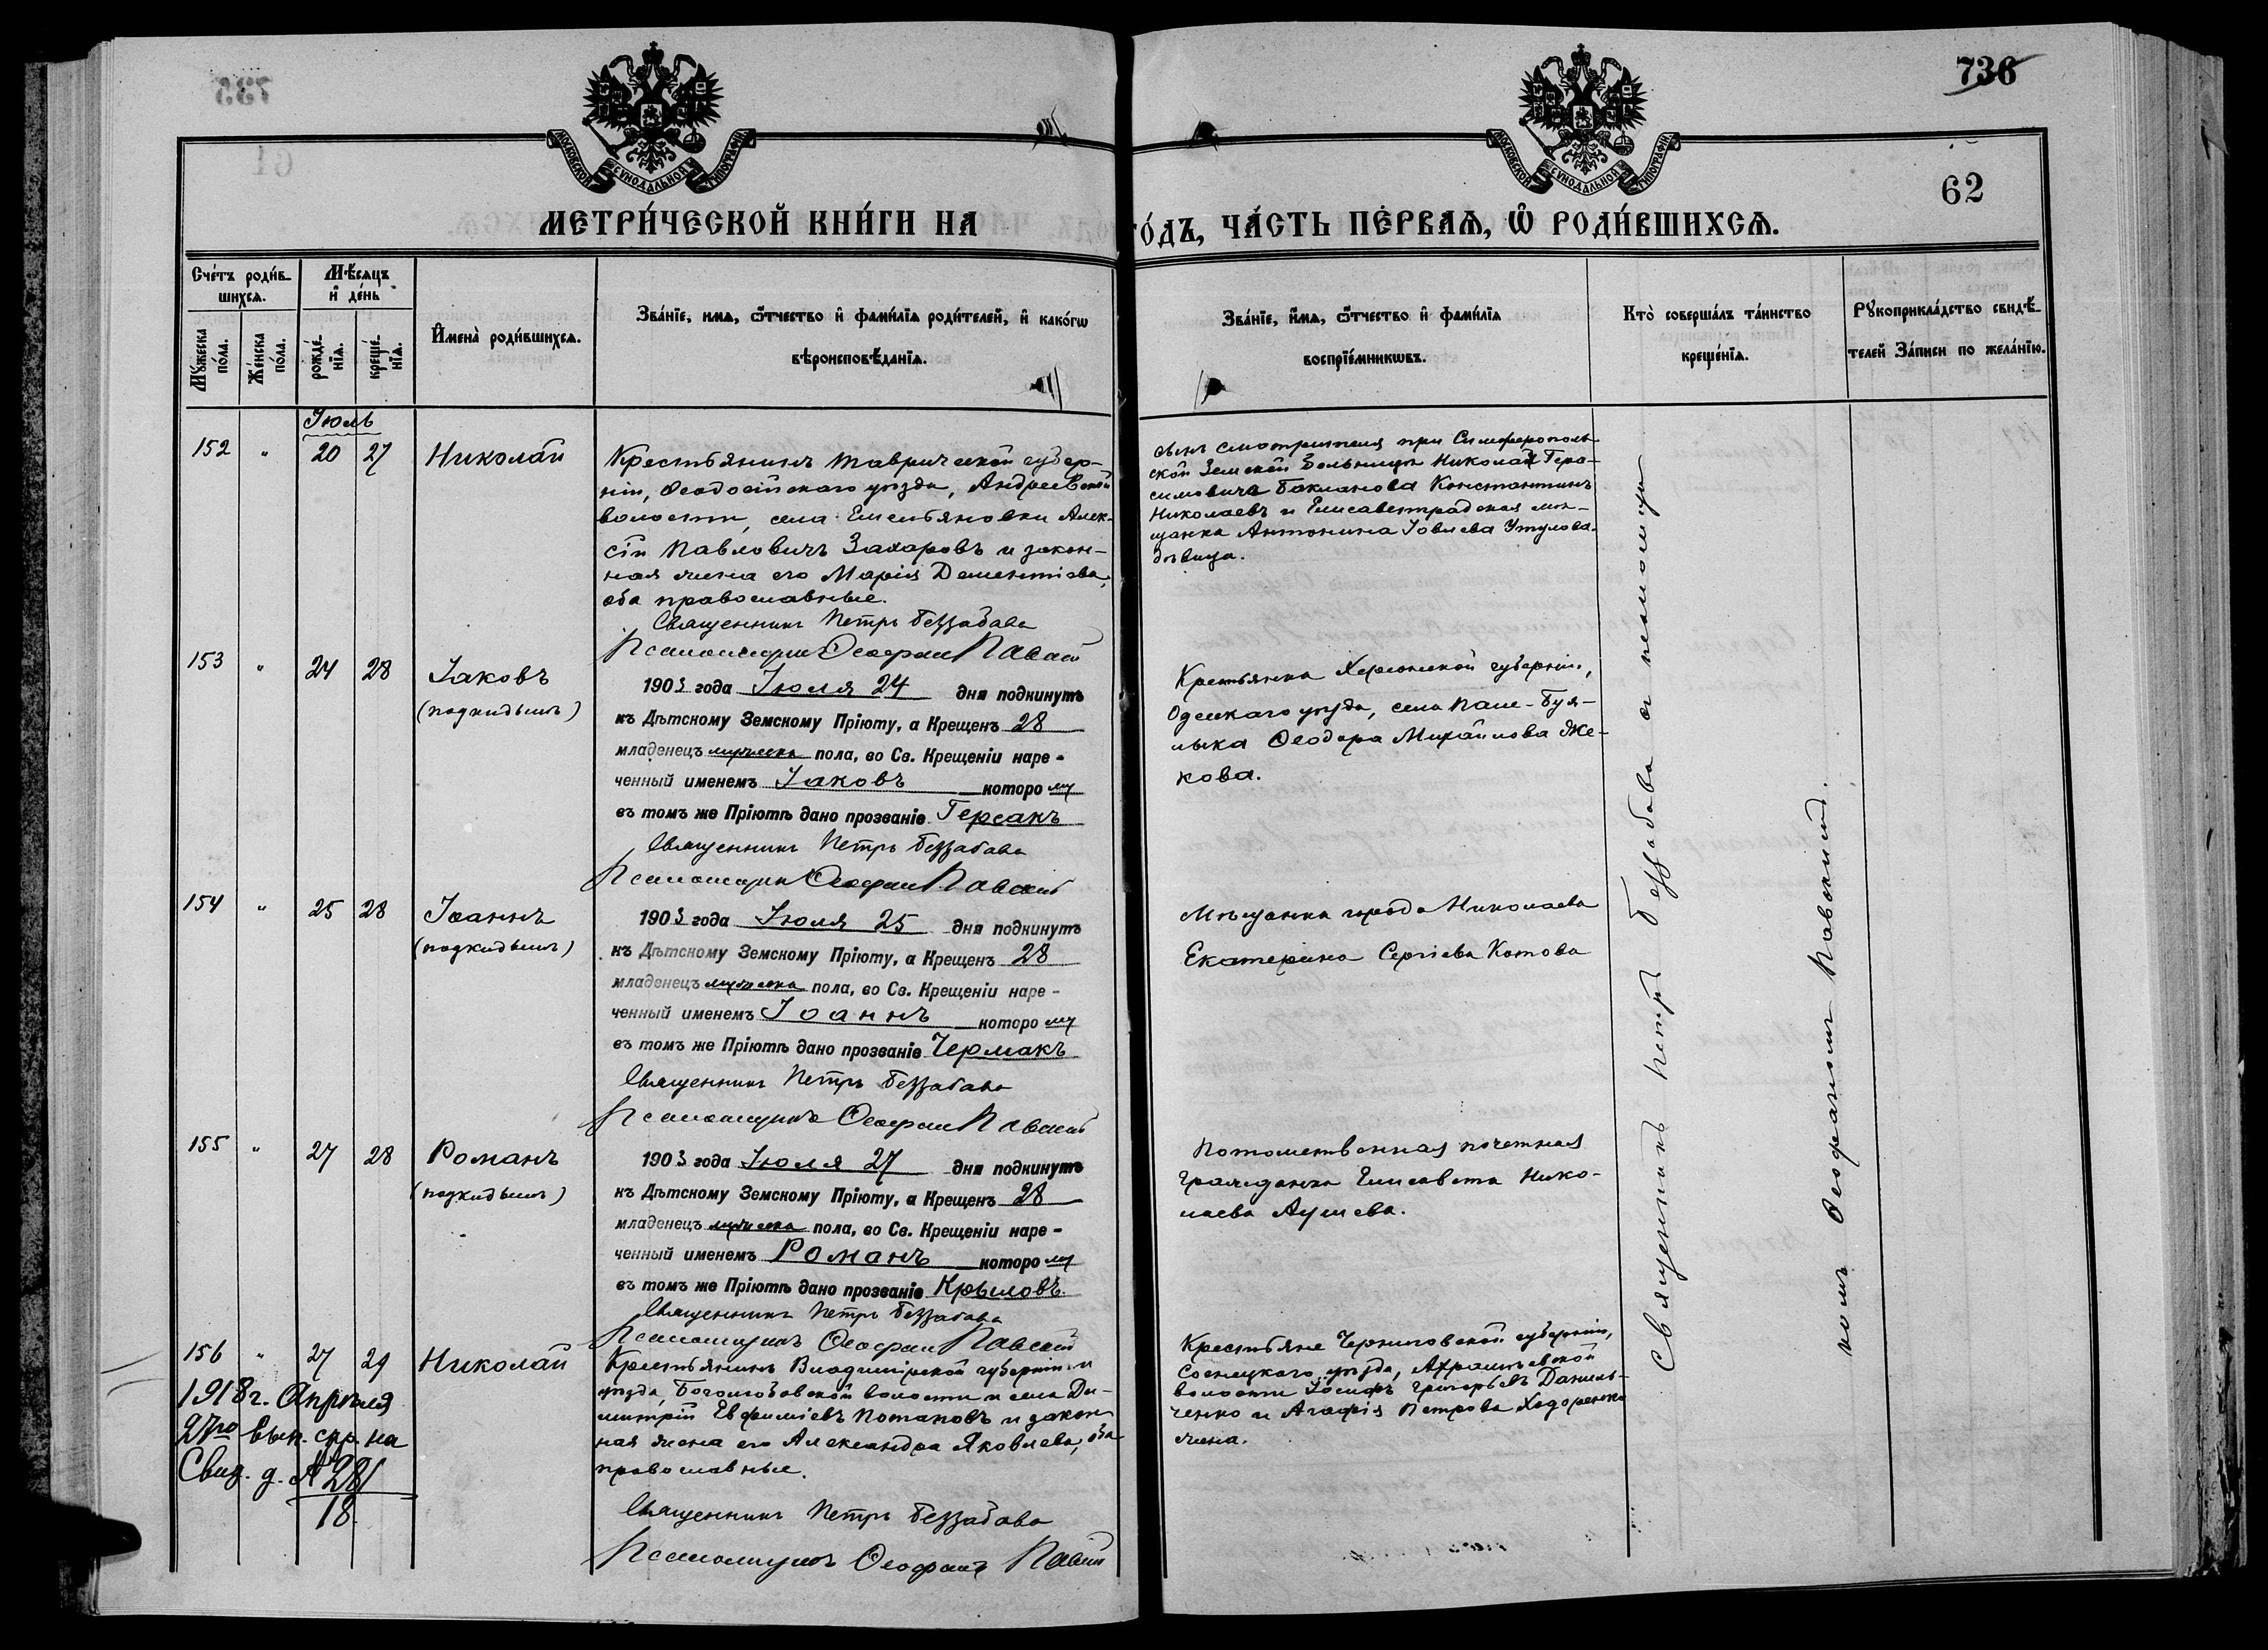 735
736
61
62
МОСКОВСКОЙ СѴНОДАЛЬНОЙ ТИПОГРАФІИ
МОСКОВСКОЙ СѴНОДАЛЬНОЙ ТИПОГРАФІИ
МЕТРИ́ЧЕСКОЙ КНИ́ГИ НА
ГО́ДЪ, ЧА́СТЬ ПЕ́РВАѦ, Ѡ҆ РОДИ́ВШИХСѦ.
Сче́тъ роди́в-
шихсѧ.
Мѣ́сѧцъ
и҆ де́нь
Мꙋ́жеска
по́ла.
Же́нска
по́ла.
рожде́-
нїѧ.
креще́-
нїѧ.
И҆мена̀ роди́вшихсѧ.
Зва́нїе, и́мѧ, ѻ҆́тчество и҆ фами́лїѧ роди́телей, и҆ како́гѡ
вѣроисповѣ́данїѧ.
Зва́нїе, и҆́мѧ, ѻ҆́тчество и҆ фами́лїѧ
воспрїе́мникѡвъ.
Кто̀ соверша́лъ та́инство
креще́нїѧ.
Рꙋкоприкла́дство свидѣ́-
телей За́писи по жела́нїю.
Іюль
152 " 20 27 Николай
Крестьянинъ Таврической губер-
ніи, Ѳеодосійскаго уѣзда, Андреевской
волости, села Емельяновки Алек-
сій Павловичъ Захаровъ и закон-
ная жена его Марія Дементіева,
оба православные.
Священникъ Петръ Беззабава
Псаломщикъ Ѳеофанъ Павскій
сынъ смотрителя при Симферополь-
ской Земской Больницѣ Николая Гера-
симовича Бакланова Константинъ
Николаевъ и Елисаветградская мѣ-
щанка Антонина Іовлева Утулова
дѣвица.
153 " 24 28 Іаковъ
(подкидышъ)
1903 года Іюля 24 дня подкинутъ
къ Дѣтскому Земскому Пріюту, а Крещенъ 28
младенецъ мужеска пола, во Св. Крещеніи наре-
ченный именемъ Іаковъ которому
въ томъ же Пріютѣ дано прозваніе Герсакъ
Священникъ Петръ Беззабава
Псаломщикъ Ѳеофанъ Павскій
Крестьянка Херсонской губерніи,
Одесскаго уѣзда, села Паше-Буя-
лыка Ѳеодора Михайлова Же-
кова.
154 " 25 28 Іоаннъ
(подкидышъ)
1903 года Іюля 25 дня подкинутъ
къ Дѣтскому Земскому Пріюту, а Крещенъ 28
младенецъ мужеска пола, во Св. Крещеніи наре-
ченный именемъ Іоаннъ которому
въ томъ же Пріютѣ дано прозваніе Чермакъ
Священникъ Петръ Беззабава
Псаломщикъ Ѳеофанъ Павскій
Мѣщанка города Николаева
Екатерина Сергіева Котова
155 " 27 28 Романъ
(подкидышъ)
1903 года Іюля 27 дня подкинутъ
къ Дѣтскому Земскому Пріюту, а Крещенъ 28
младенецъ мужеска пола, во Св. Крещеніи наре-
ченный именемъ Романъ которому
въ томъ же Пріютѣ дано прозваніе Крыловъ.
Священникъ Петръ Беззабава
Псаломщикъ Ѳеофанъ Павскій
Потомственная почетная
гражданка Елисавета Нико-
лаева
156 " 27 29 Николай
Крестьянинъ Владимірской губерніи и
уѣзда, Боголюбовской волости и села Ди-
митрій Евфиміевъ Потаповъ и закон-
ная жена его Александра Яковлева, оба
православные.
Священникъ Петръ Беззабава
Псаломщикъ Ѳеофанъ Павскій
Крестьяне Черниговской губерніи,
Сосницкаго уѣзда,
волости Іосифъ Григорьевъ Даниль-
ченко и Агафія Петрова Ходоренко
жена.
1918 г. Апрѣля
27го вып. спр. на
Свид. д. № 281
18.
Священникъ Петръ Беззабава съ псаломщи-
комъ Ѳеофаномъ Павскимъ.